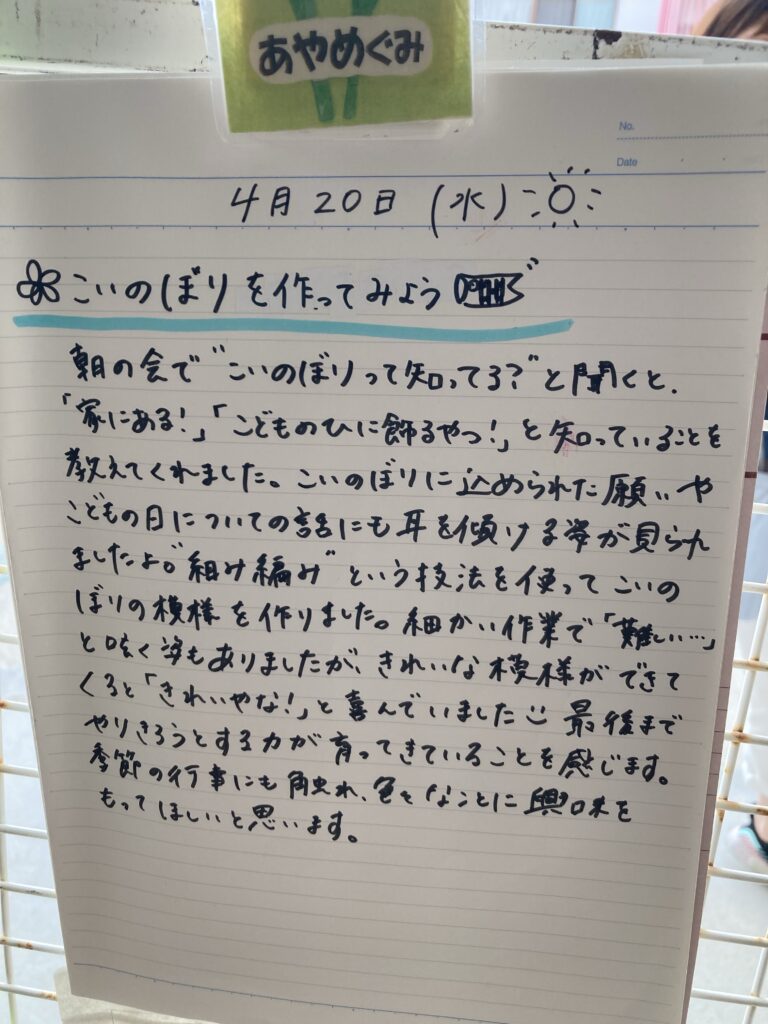 あやめぐみ
No.
Date
4月20日(水)
こいのぼりを作ってみよう
朝の会で"こいのぼりって知ってる?"と聞くと、
「家にある!」「こどものひに飾るやつ!」と知っていることを
教えてくれました。こいのぼりに込められた願いや
こどもの日についての話にも耳を傾ける姿が見られ
ましたよ。"組み編み"という技法を使ってこいの
ぼりの模様を作りました。細かい作業で「難しい…」
と呟く姿もありましたが、きれいな模様ができて
くると「きれいやな!」と喜んでいました 最後まで
やりきろうとする力が育ってきていることを感じます。
季節の行事にも触れ、色々なことに興味を
もってほしいと思います。